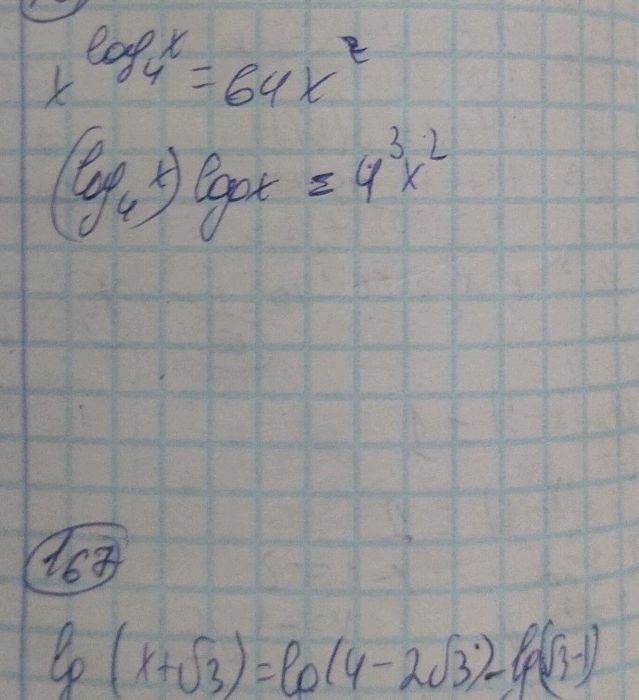 x^{log_4 x} = 64x^2
(log_4 x) log x = 4^3 x^2
167
lg (x+√3) = lg(4-2√3)-lg(√3-1)